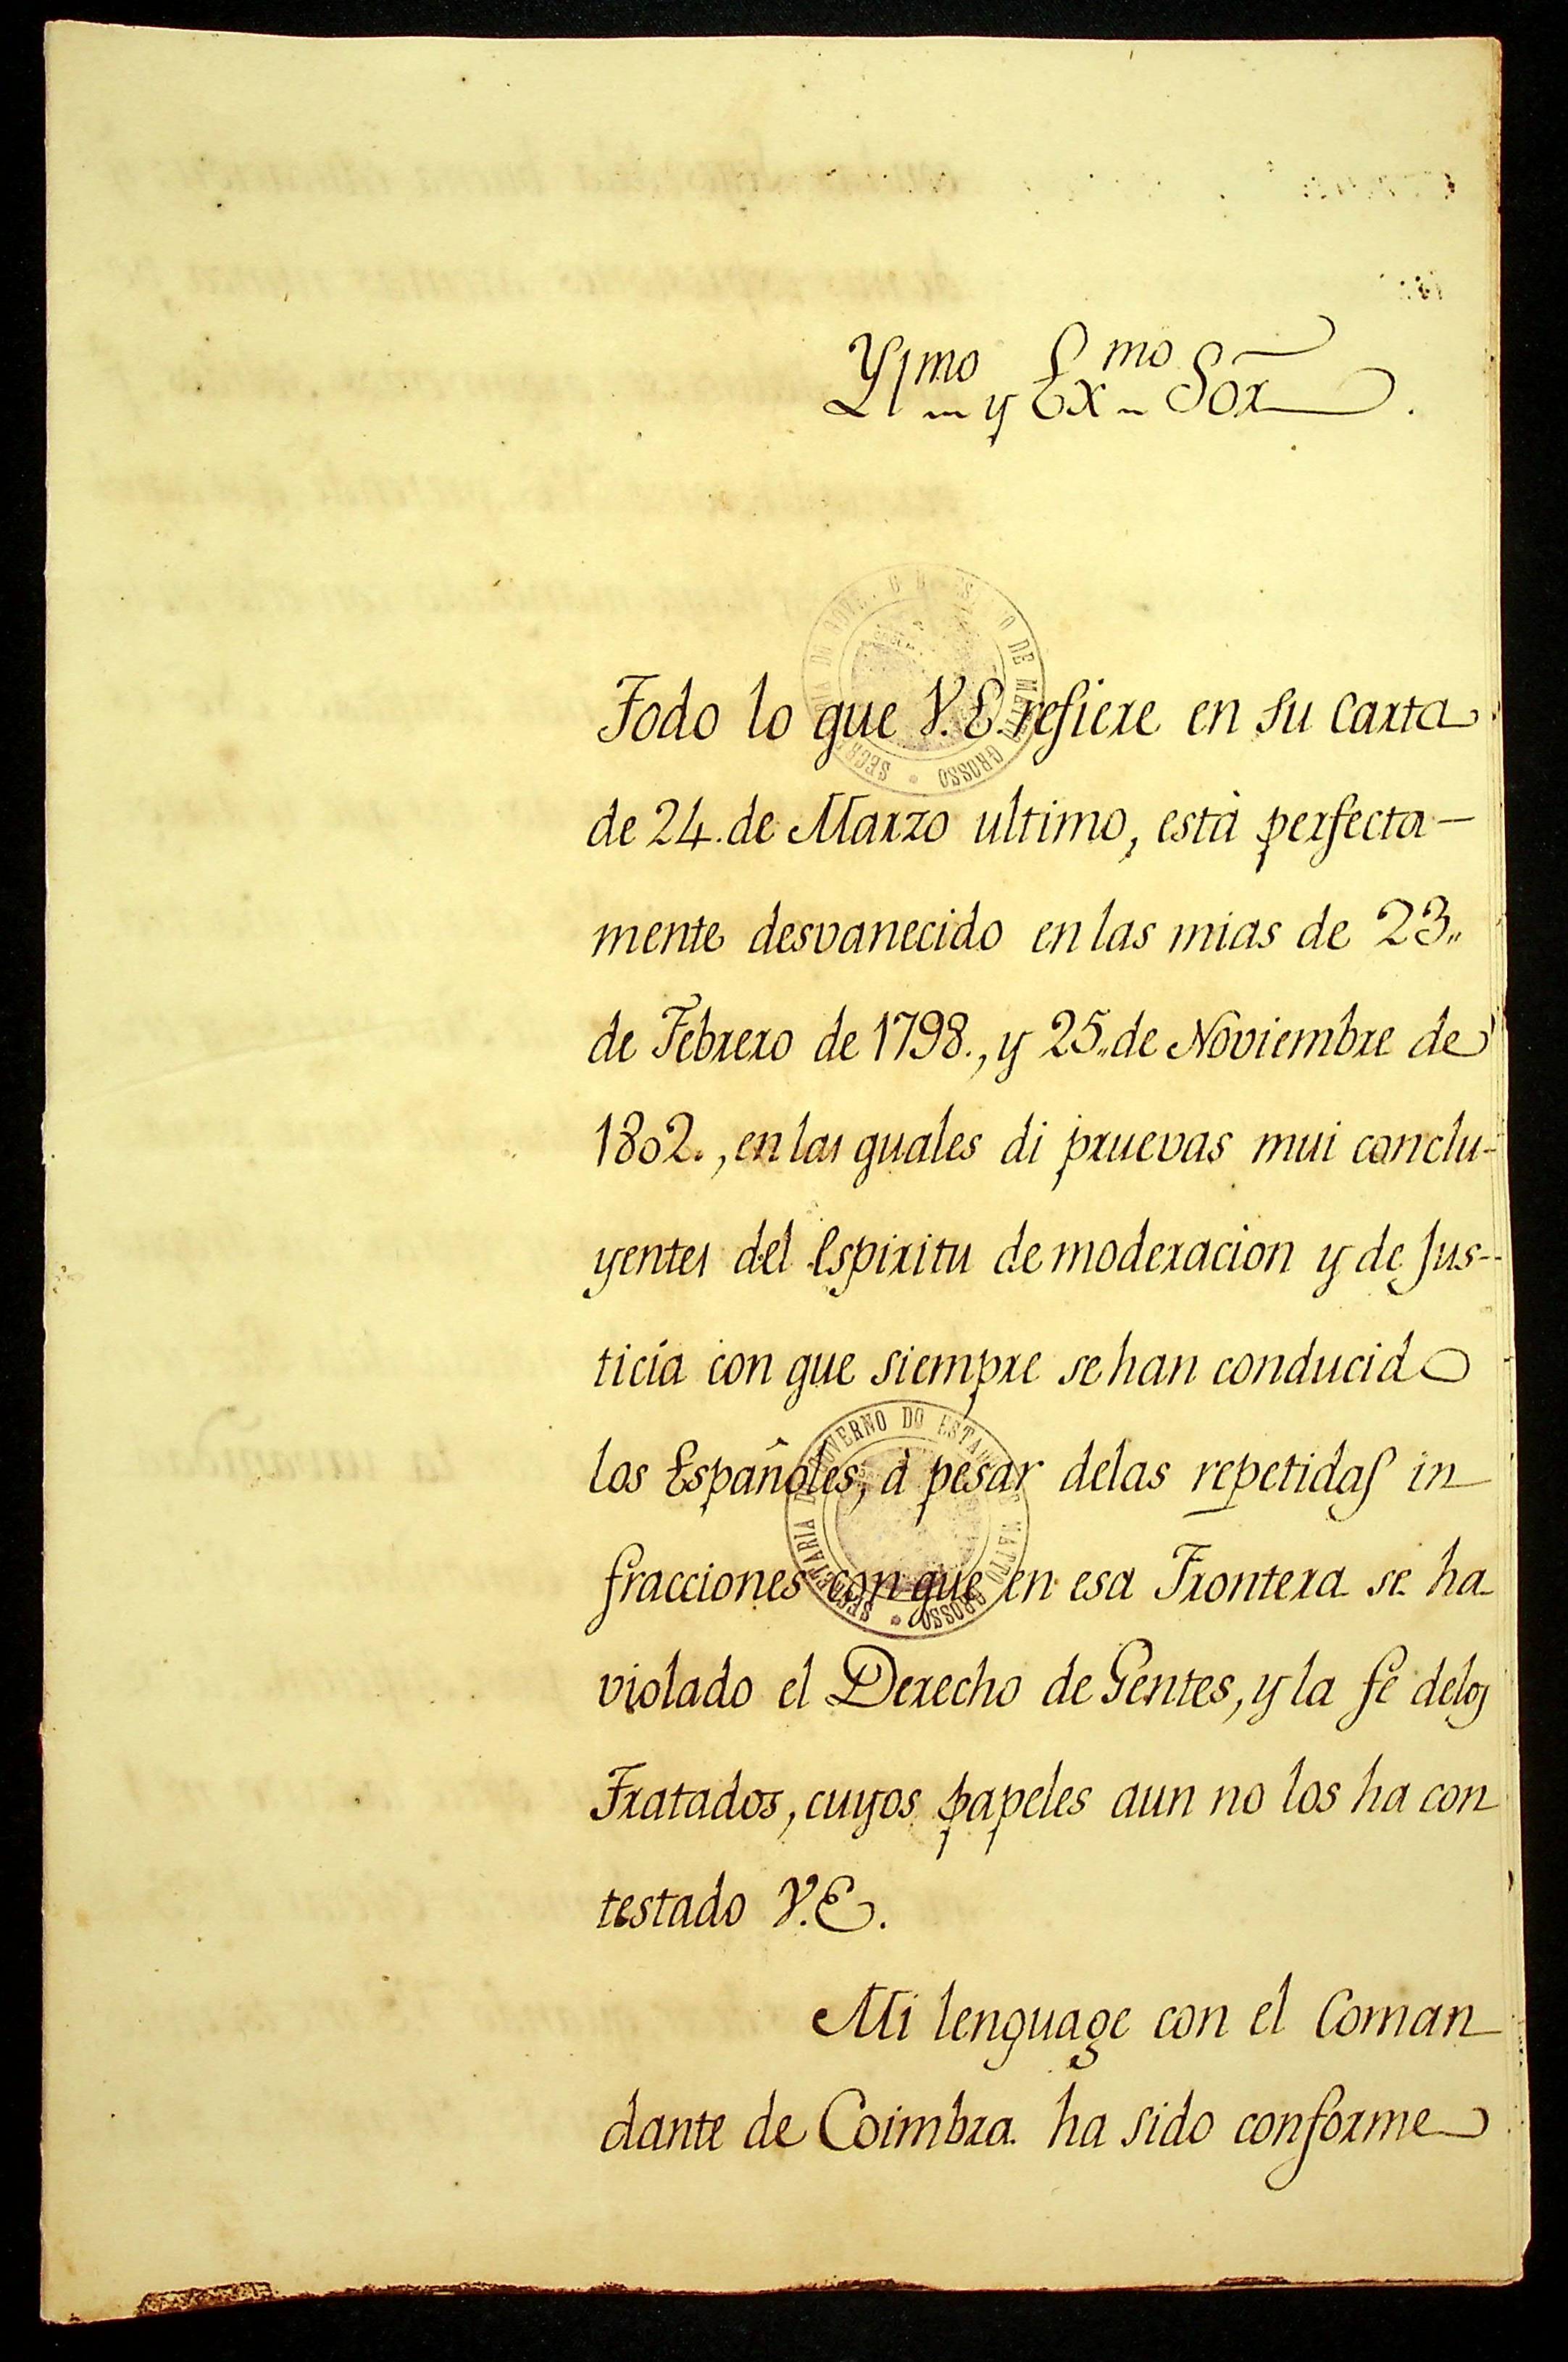 Yl.mo y Ex.mo Sor.
Todo lo que V.E. refiere en su Carta
de 24. de Marzo ultimo, està perfecta-
mente desvanecido en las mias de 23,,
de Febrero de 1798., y 25,, de Noviembre de
1802., en las quales di pruevas mui conclu-
yentes del Espiritu de moderacion y de Jus-
ticia con que siempre se han conducido
los Españoles, à pesar delas repetidas in
fracciones con que en esa Frontera se ha
violado el Derecho de Gentes, y la fe delos
Tratados, cuyos papeles aun no los ha con
testado V.E.
Mi lenguage con el Coman
dante de Coimbra ha sido conforme
SECRETARIA DO GOVERNO DO ESTADO DE MATTO GROSSO
SECRETARIA DO GOVERNO DO ESTADO DE MATTO GROSSO